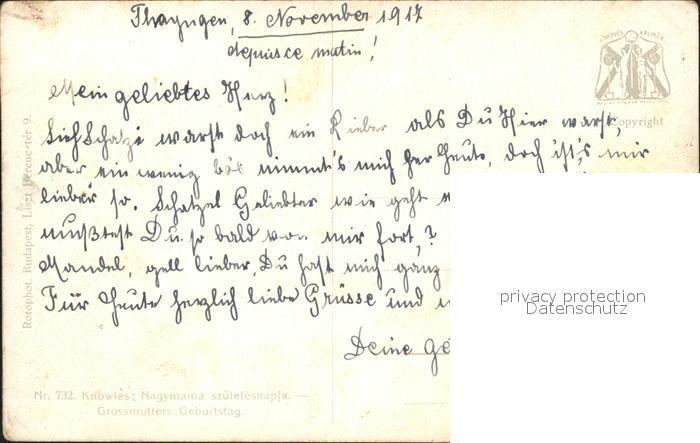 Thayngen, 8. November 1917
depuis ce matin!
Mein geliebtes Herz!
Sieh Schatzi warst doch ein Lieber als Du Hier warst,
aber ein wenig bös nimmt's mich her heute, doch ist's mir
lieber so. Schatzel Geliebter wie geht
mußtest Du so bald von mir fort,?
Mandel, gell lieber, Du hast mich ganz
Für Heute herzlich liebe Grüsse und
Deine Ge
KÖNYVES KÁLMÁN
Copyright
Rotophot. Budapest, Liszt Ferenc-tér 9.
Nr. 732. Knowles: Nagymama születésnapja. —
Grossmutters Geburtstag.
privacy protection
Datenschutz